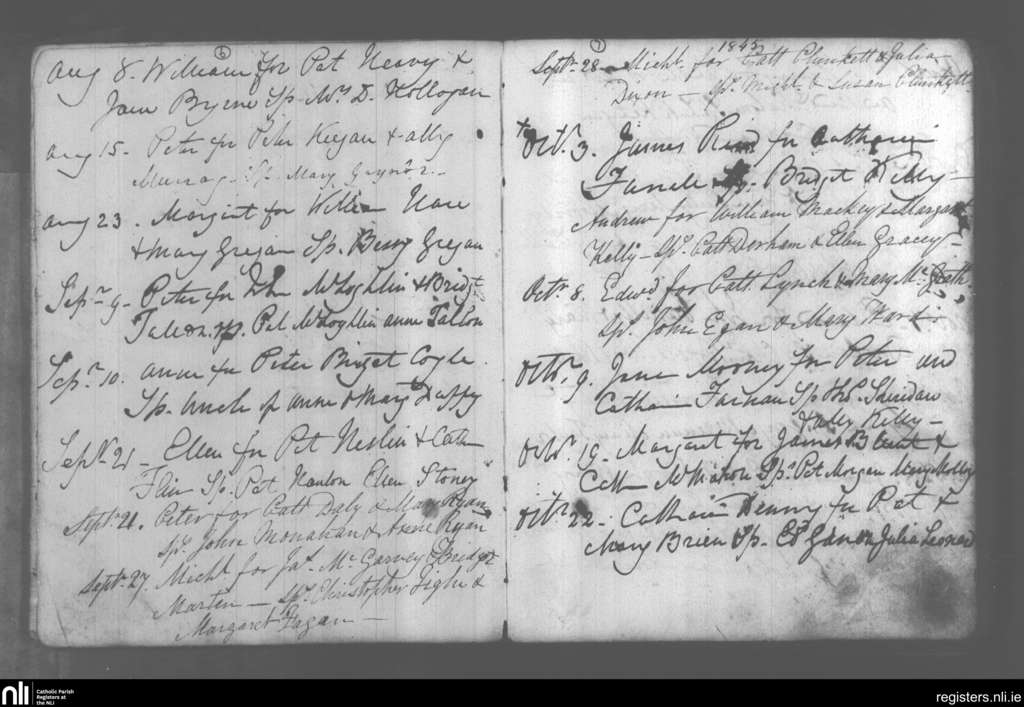 6
Aug 8. William for Pat Heavy &
Jane Byrne Sp. Mr. D. Hollogan
Aug 15. Peter for Peter Keegan & Ally
Murray Sp. Mary Gaynor
Aug 23. Margint for William Nare
& Mary Gregan Sp. Bessy Gregan
Sepr. 9. Peter for John McLoghlin & Bridgt
Sp. Pat McLoghlin Anne Tallon
Sepr. 10. Anne for Peter Briget Coyle
Sp. Uncle of Anne & Mary Duffy
Sepr. 21 - Ellen for Pat Neslin & Cath
Sp. Pat Hanlon Ellen Stoney
Septr. 21. Peter for Patt Daly & Mary Ryan
Sps. John Monahan & Anne Ryan
Septr. 27. Michl. for Jas. McGarvey & Bridget
Marten - Sps. Christopher Tighe &
Margaret Fagan -
7
1845
Septr. 28 - Michl. for Patt Plunkett & Julia
Dixon - Sps. Michl. & Susan Plunkett
Octr. 3. James for Catherine
Sp. Bridget Kelly -
Andrew for William Mackey & Margaret
Kelly - Sps. Patt Dorham & Ellen Gracey -
Octr. 8. Edwd. for Patt Lynch & Mary Mc
Sps. John Egan & Mary Ward
Octr. 9. Jane Mooney for Peter and
Catharin Farnan Sp Thos. Sheridan
& Ally Kelly -
Octr. 19. Margaret for James &
Cath McMahon Sps. Pat Morgan Mary Molloy
Octr. 22 - Catharin Denny for Pat &
Mary Brien Sp. Julia Leonard
nli
Catholic Parish
Registers at
the NLI
registers.nli.ie